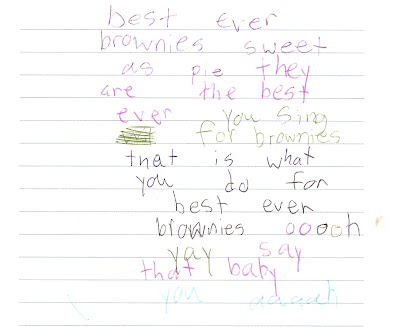 best ever
brownies sweet
as pie they
are the best
ever you sing
for brownies
that is what
you do for
best ever
brownies ooooh
yay say
that baby
you aaaah